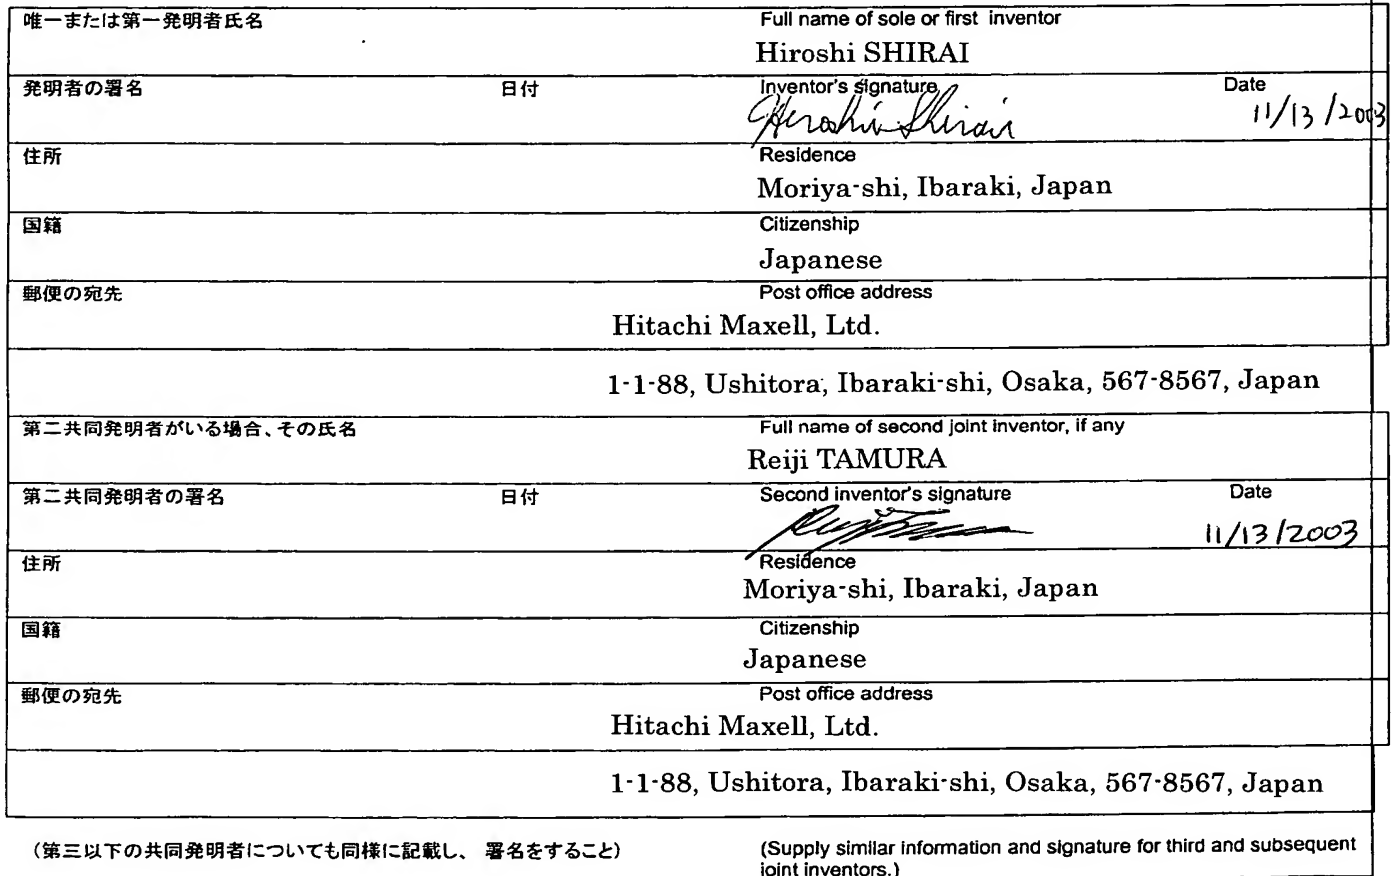 唯一または第一発明者氏名 Full name of sole or first inventor
Hiroshi SHIRAI
発明者の署名 日付 Inventor's signature Date
Hiroshi Shirai 11/13/2003
住所 Residence
Moriya-shi, Ibaraki, Japan
国籍 Citizenship
Japanese
郵便の宛先 Post office address
Hitachi Maxell, Ltd.
1-1-88, Ushitora, Ibaraki-shi, Osaka, 567-8567, Japan
第二共同発明者がいる場合、その氏名 Full name of second joint inventor, if any
Reiji TAMURA
第二共同発明者の署名 日付 Second inventor's signature Date
11/13/2003
住所 Residence
Moriya-shi, Ibaraki, Japan
国籍 Citizenship
Japanese
郵便の宛先 Post office address
Hitachi Maxell, Ltd.
1-1-88, Ushitora, Ibaraki-shi, Osaka, 567-8567, Japan
(第三以下の共同発明者についても同様に記載し、 署名をすること) (Supply similar information and signature for third and subsequent
joint inventors.)